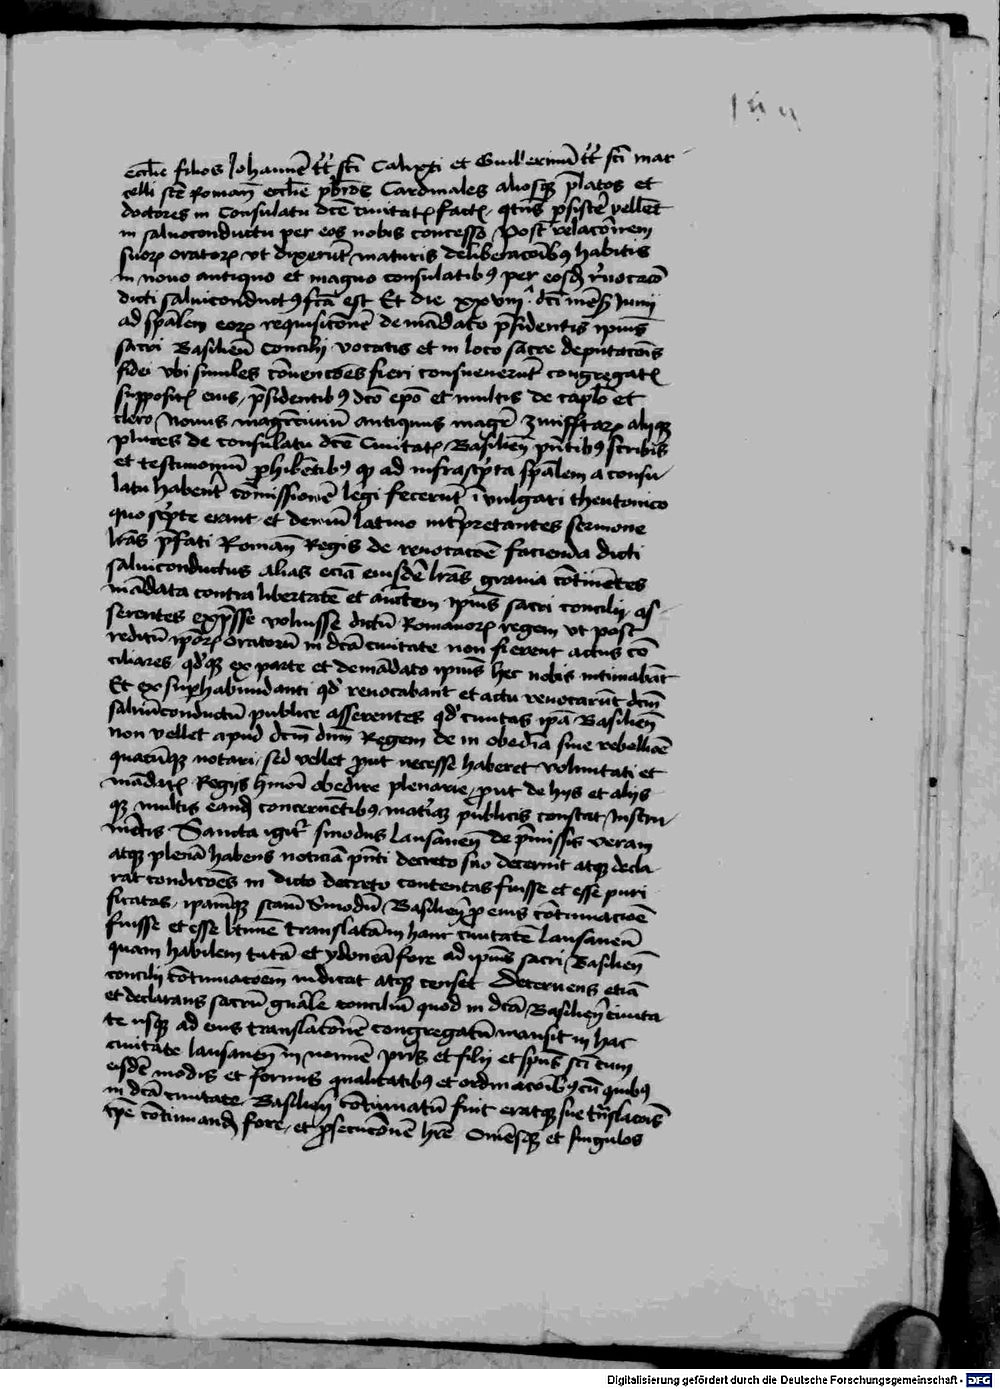 eccl̄ie filios Johannē tt̄ sc̄ti Calixti et Guilẽrimū tt̄ sc̄ti mar
celli sc̄te Roman̄ eccl̄ie pr̄bros Cardinales aliosqȝ p̄latos et
doctores in Consulatu dc̄e ciuitatꝭ factꝭ qt̄ns p̄sisterē vellent
in saluoconductu per eos nobis concesso Post relac̄onem
suorꝝ oratorꝝ vt dixerūt maturis deliberac̄oībꝯ habitis
in nouo antiquo et magno consulatibꝯ per eosdꝫ r̄uocac̄o
dicti saluiconductꝯ fc̄a est Et die xxviii dc̄i mēs̄ Junij
ad sp̄alem eorꝝ requisic̄onē de mādato p̄sidentis ipīus
sacri Basilien̄ Concilij vocatis et in loco sacre deputac̄ois
fidei vbi similes cōuenc̄oēs fieri consueuerūt congregatꝭ
suppositꝭ eius p̄sidentibꝯ dc̄o ep̄o et multis de cap̄lo et
clero Nouus magr̄ciuiū antiquus magr̄ zunfftarꝝ alijqȝ
plures de consulatu dc̄e Ciuitatꝭ Basilien̄ pn̄tibꝯ scribis
et testimoniū ꝓhibētibꝯ qꝫ ad infrascp̄ta sp̄alem a consu
latu habent cōmissionē legi fecerūt ī vulgari theutonico
quo scp̄te erant et demū latino int̄pretantes sermone
lr̄as p̄fati Roman̄ Regis de reuocac̄oē facienda dicti
saluiconductus alias eciā eiusdē lr̄as grauia cōtinētes
mādata contra libertatē et auc̄tem ipīus sacri concilij as
serentes exp̄sse voluisse dictū Romanorꝝ regem vt post
reditū ip̄orꝝ oratorū in dc̄a ciuitate non fierent actus cō
ciliares qd̕qȝ ex parte et de mādato ipīus hec nobis intimabāt
Et ex suꝑhabundanti qd̕ reuocabant et actu reuocarūt dc̄m
saluūconductū publice asserentes qd̕ ciuitas ip̄a Basilien̄
non vellet apud dc̄m dn̄m Regem de in obediā siue rebellioē
quacūqȝ notari sed vellet ꝓut necesse haberet voluntati et
mādatꝭ Regijs hmōi obedire plenarie ꝓut de hijs et alijs
qȝ multis eandꝫ concernētibꝯ mat̄iaqȝ publicis constat Instru
mētis Sancta igit̄ sinodus Lausanen̄ de p̄missis veram
atqȝ plenā habens noticiā pn̄ti decreto suo decernit atqȝ decla
rat condic̄oēs in dicto decreto contentas fuisse et esse puri
ficatas ipamqȝ sc̄am sinodū Basilien̄ ꝓ eius cōtinuac̄oē
fuisse et esse ltīme translatam in hanc ciuitatē lausanen̄
quam habilem tutā et ydoneā fore ad ipīus sacri Basilien̄
concilij cōtinuac̄oem iudicat atqȝ censet Decernens etiā
et declarans sacrū gnāle conciliū quod in dc̄a Basilien̄ ciuita
te usqȝ ad eius translac̄onē congregatū mansit in hac
ciuitate lausanen̄ in nomē pr̄is et filij et sp̄us sc̄i cum
eisdē modis et formis qualitatibꝯ et ordinac̄oībꝯ cū quibꝯ
in dc̄a ciuitate Basilien̄ cōtinuatū fuit eratqȝ sue tn̄slac̄ois
tp̄e cōtinuandꝫ fore et ꝓsecuc̄onē hr̄e Omēsqȝ et singulos
Digitalisierung gefördert durch die Deutsche Forschungsgemeinschaft - DFG